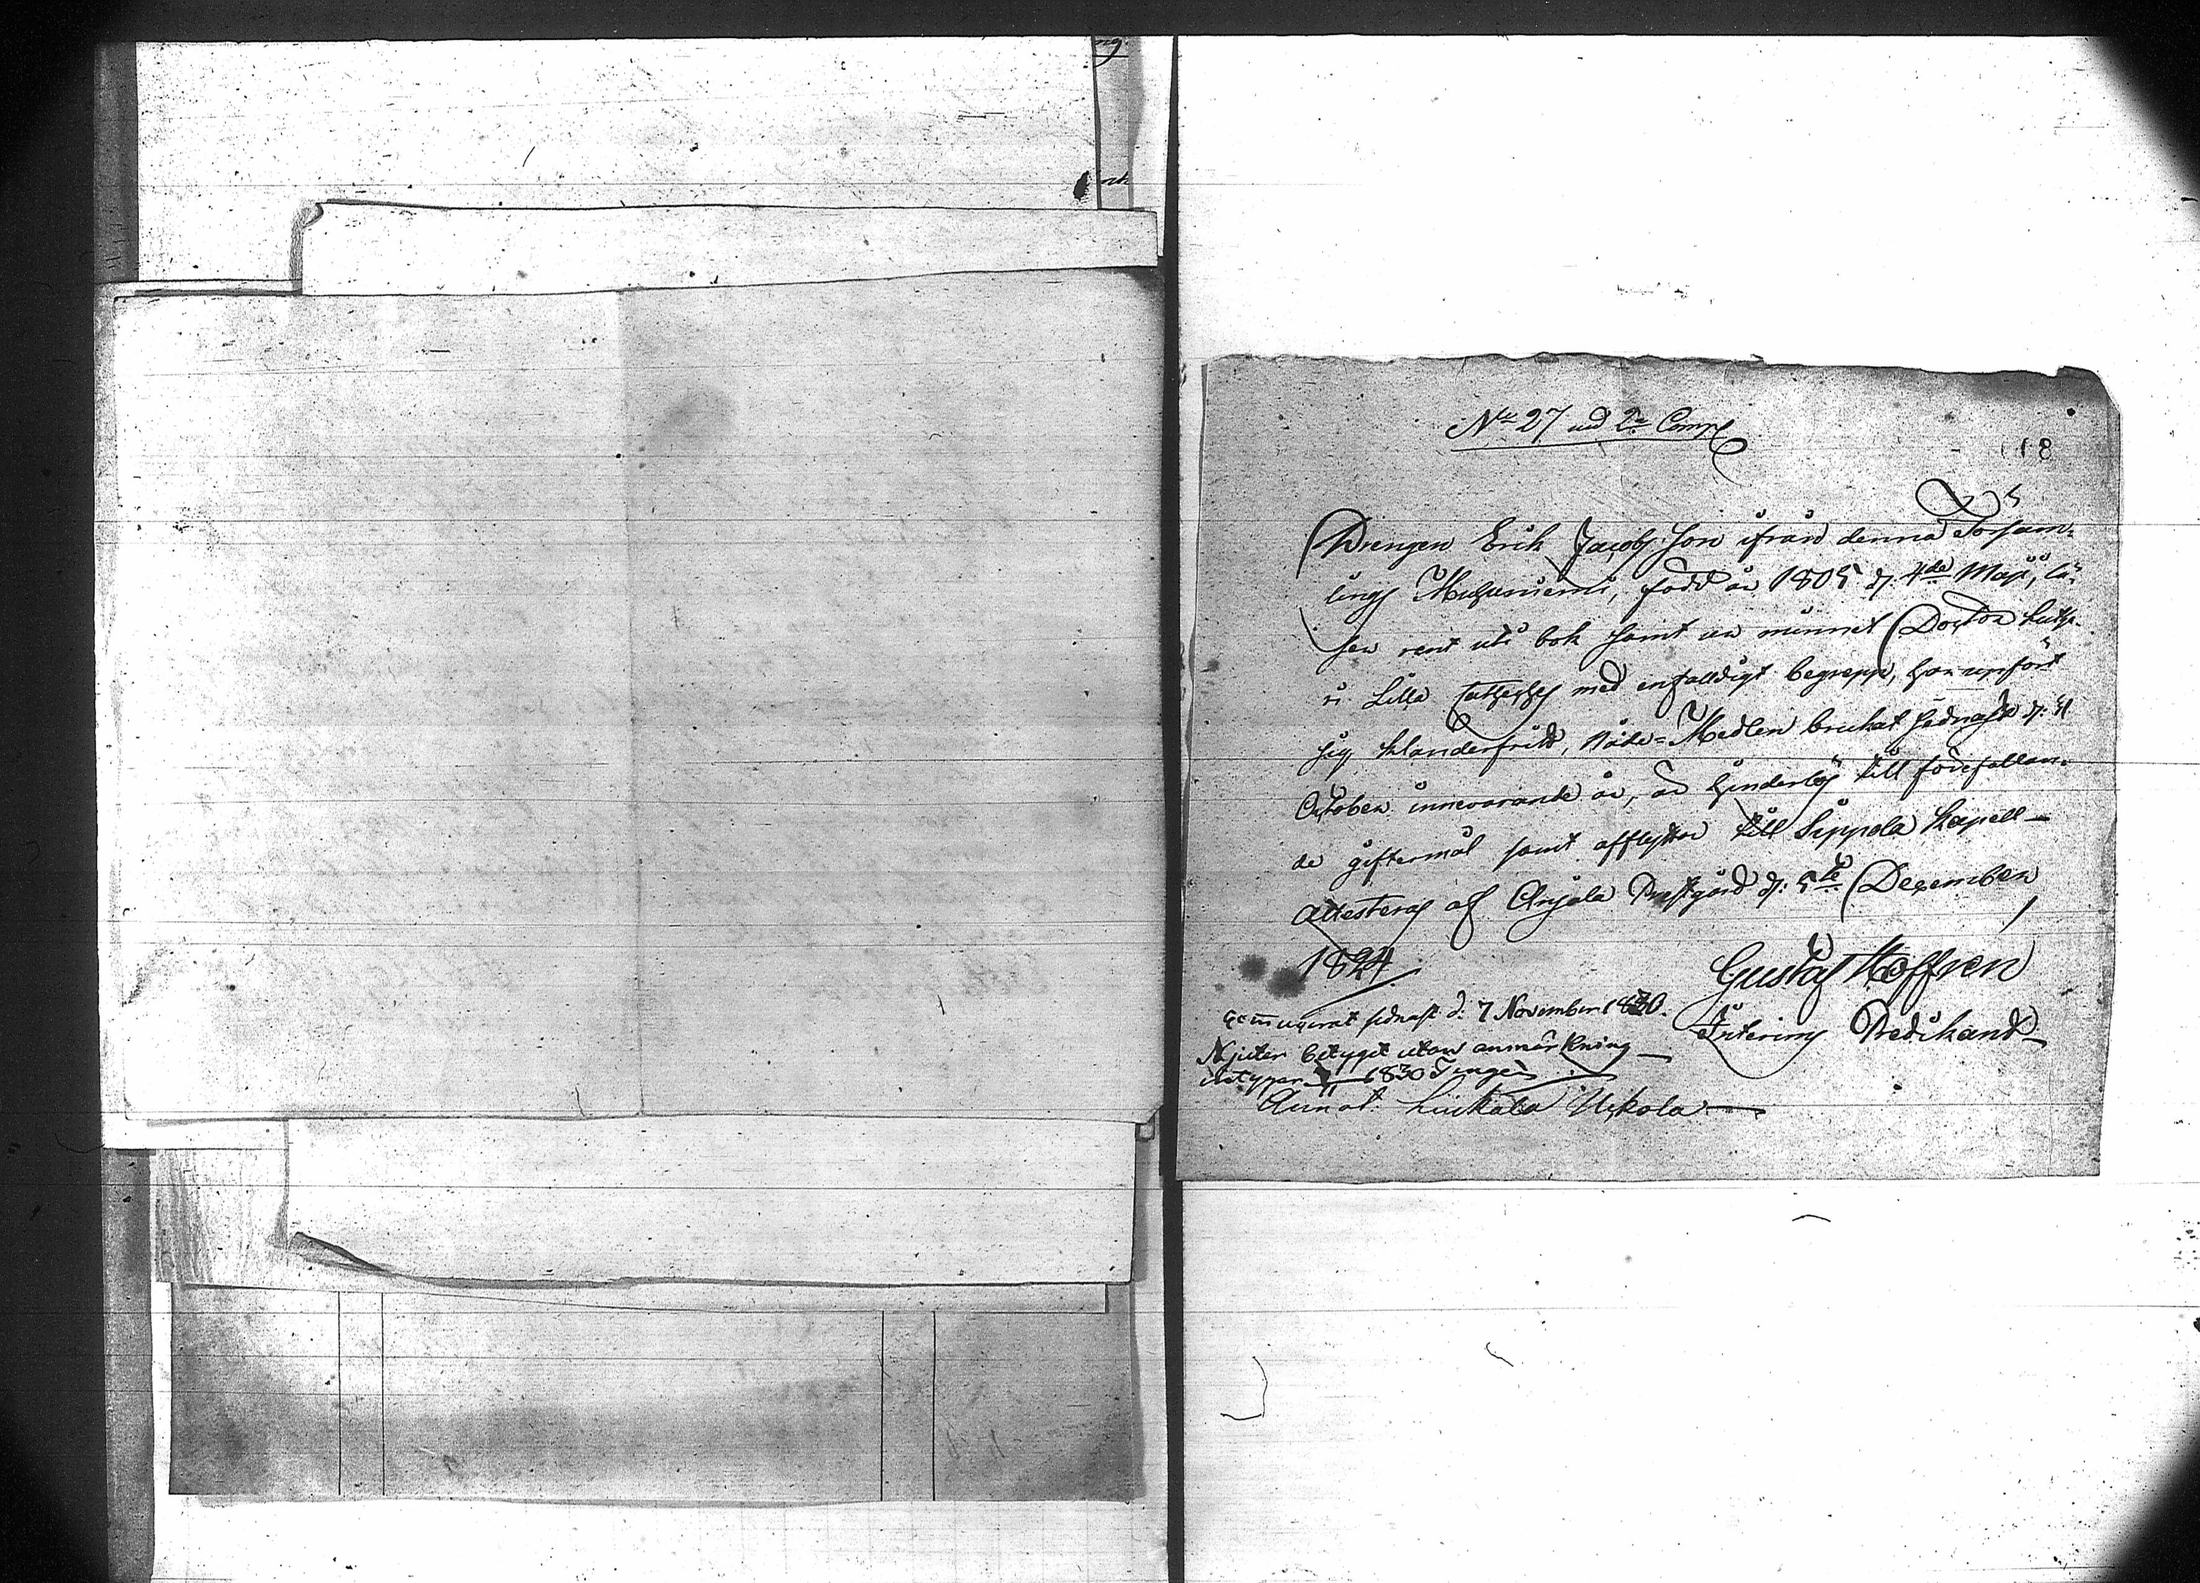 No 27 vid 2a Comp
118
Drengen Erik Jacobsson ifrån denna Försam-
lings Muhuniemi, född år 1805 d. 4de Maji, lä-
ser rent uti bok samt ur minnet Doctor Luthe-
ri Lilla Catheches med enfalldigt begrepp, har upfört
sig klanderfritt, Nåde-Medlen brukat sednast d. 11
October innevarande år, är hinderlös till förefallan-
de giftermål samt afflyttar till Sippola Kapell
Attesteras af Anjala Prestgård d. 5te December
1824.
Gustaf Hoffren
Interims Predikant
Communicerat sednast d. 7 November 1830.
Njuter betyget utan anmärkning
1830
Annot. Liikala Uckola